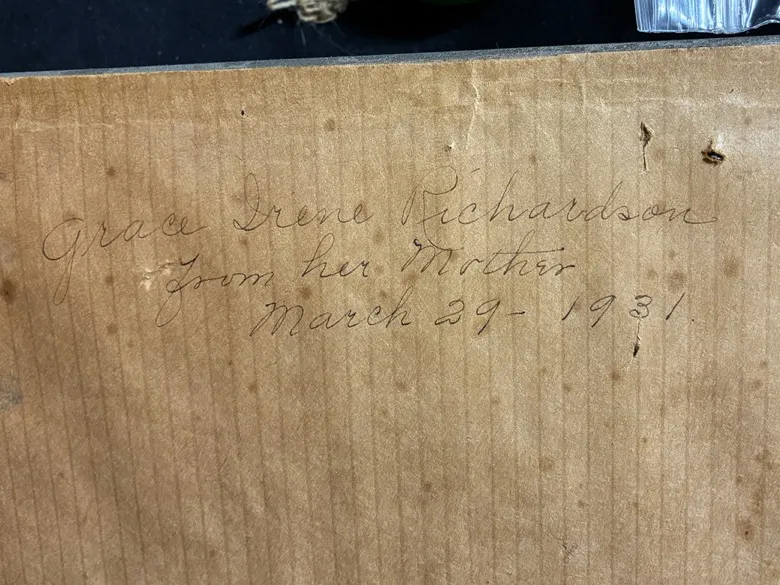 Grace Irene Richardson
from her Mother
March 29 - 1931.